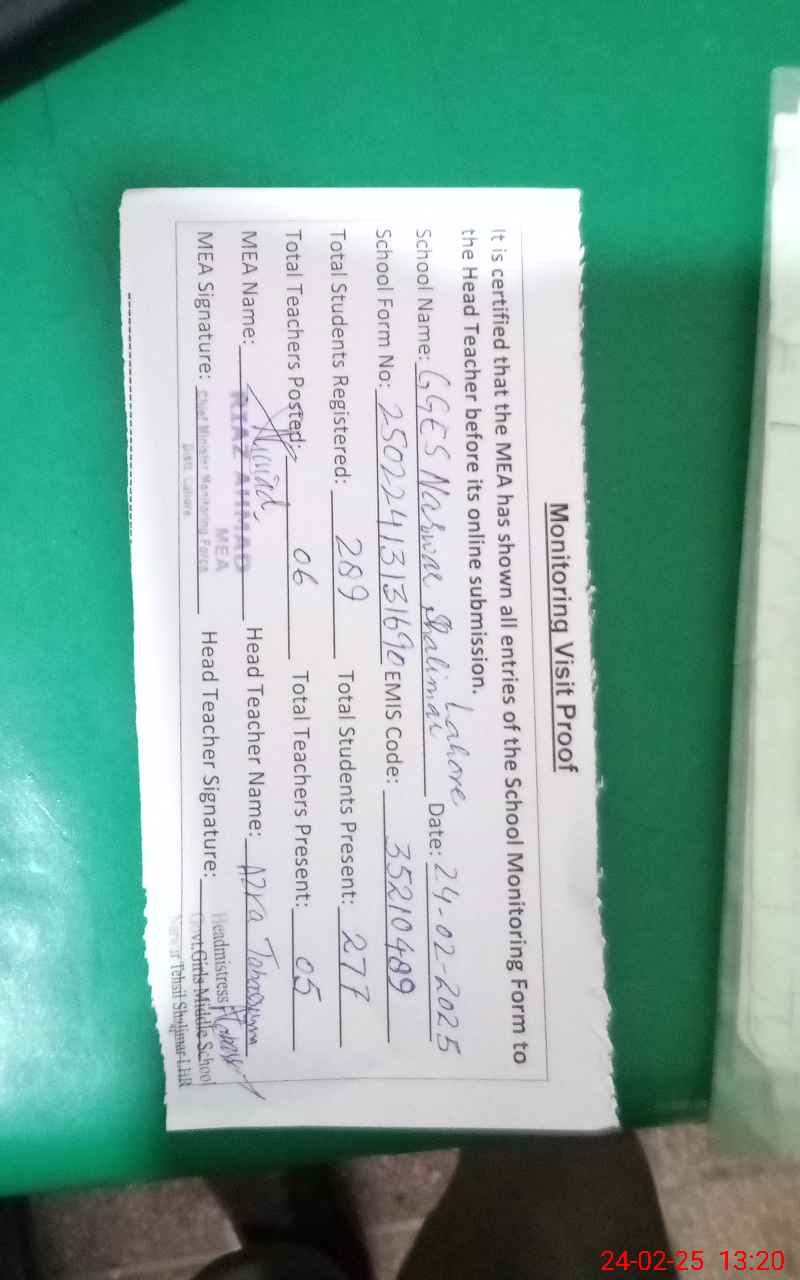 Monitoring Visit Proof
It is certified that the MEA has shown all entries of the School Monitoring Form to
the Head Teacher before its online submission.
School Name: GGES Narwar Shalimar Lahore Date: 24-02-2025
School Form No: 25022413131690 EMIS Code: 35210489
Total Students Registered: 289 Total Students Present: 277
Total Teachers Posted: 06 Total Teachers Present: 05
MEA Name: RIAZ AHMAD Head Teacher Name: Azra Tabassum
MEA
MEA Signature: Chief Minister Monitoring Force Head Teacher Signature:
Distt. Lahore.
Headmistress
Govt. Girls Middle School
Tehsil Shalimar LHR
24-02-25 13:20